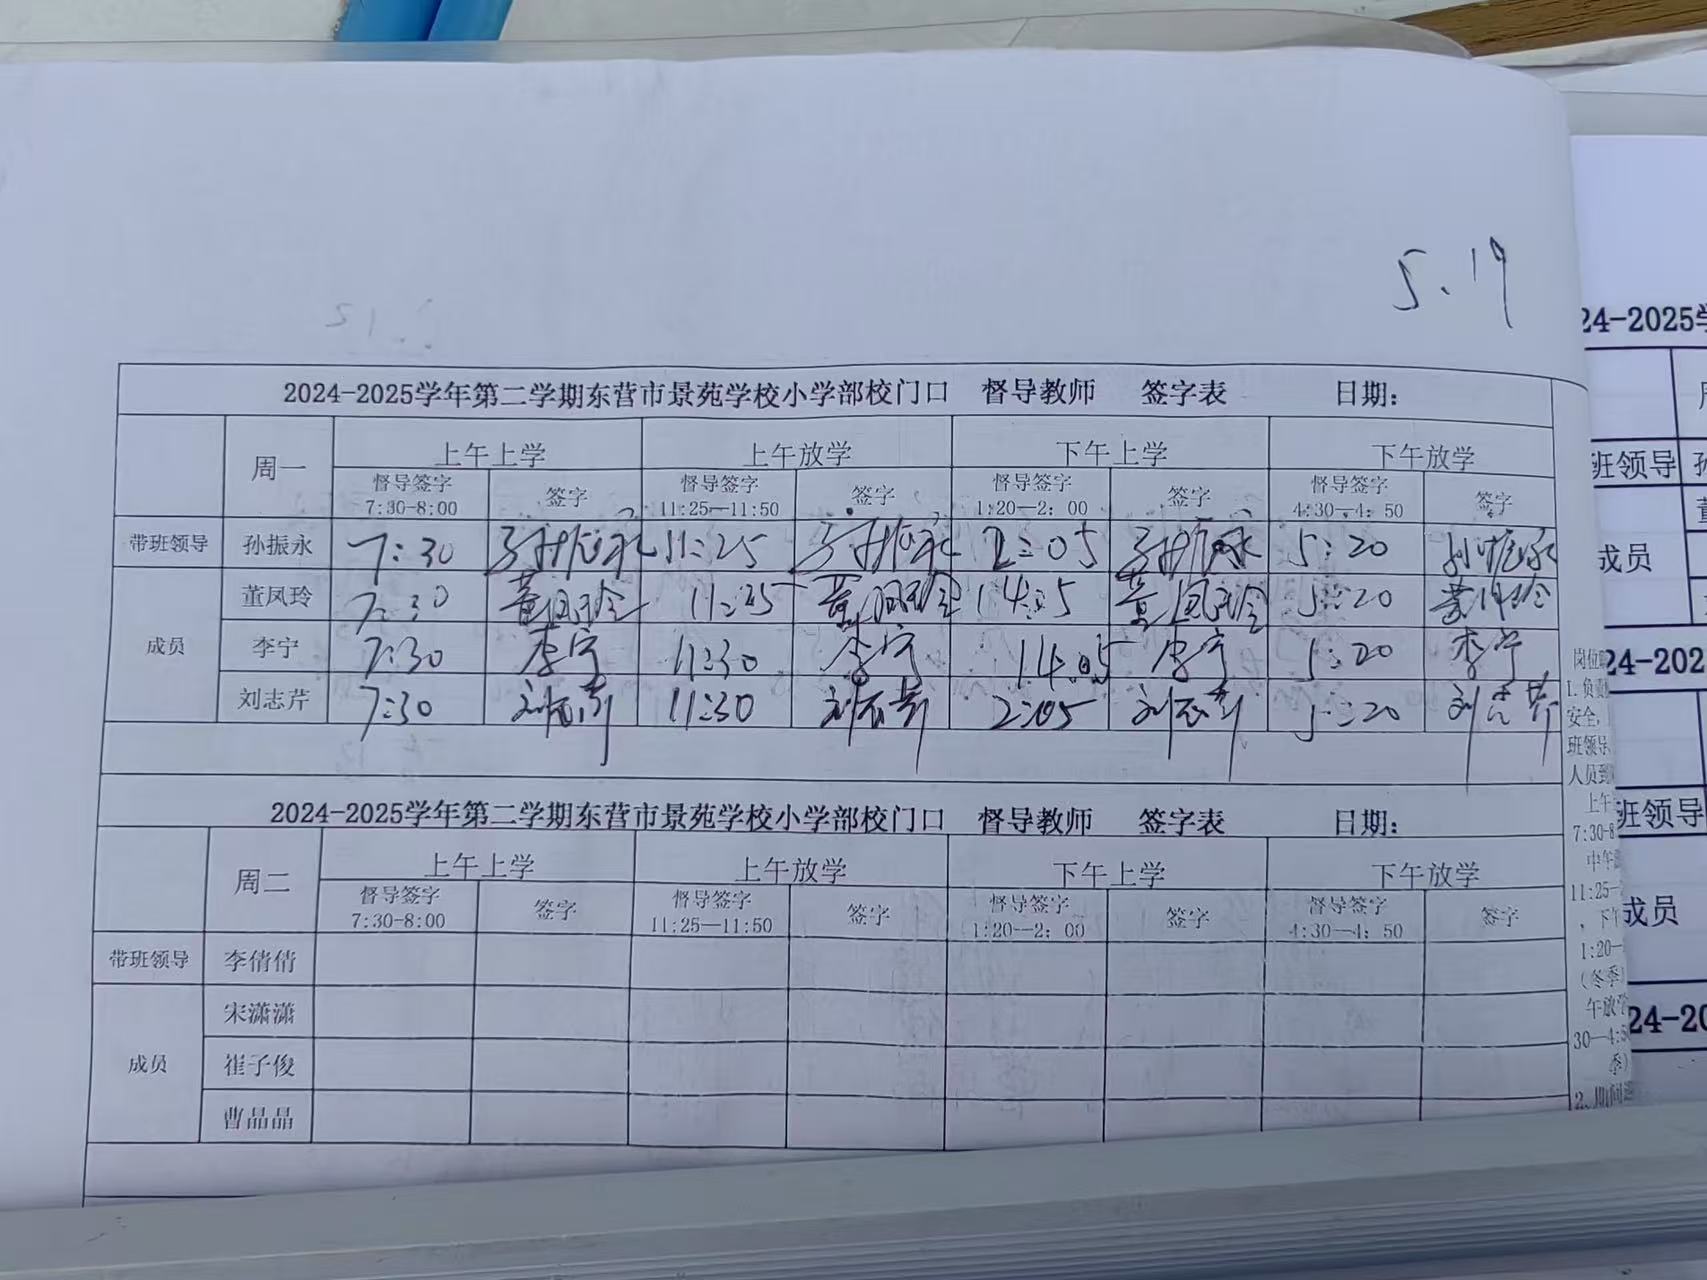 5.19
2024-2025学年第二学期东营市景苑学校小学部校门口 督导教师 签字表 日期:
周一 上午上学 上午放学 下午上学 下午放学
督导签字 签字 督导签字 签字 督导签字 签字 督导签字 签字
7:30-8:00 11:25—11:50 1:20—2: 00 4:30—4: 50
带班领导 孙振永 7:30 孙振永 11:25 孙振永 2:05 孙振永 5:20 孙振永
成员
董凤玲 7:30 董凤玲 11:25 董凤玲 14:5 董凤玲 5:20 董凤玲
李宁 7:30 李宁 11:30 李宁 14:05 李宁 5:20 李宁
刘志芹 7:30 刘志芹 11:30 刘志芹 2:05 刘志芹 5:20 刘志芹
2024-2025学年第二学期东营市景苑学校小学部校门口 督导教师 签字表 日期:
周二 上午上学 上午放学 下午上学 下午放学
督导签字 签字 督导签字 签字 督导签字 签字 督导签字 签字
7:30-8:00 11:25—11:50 1:20—2: 00 4:30—4: 50
带班领导 李倩倩
成员
宋潇潇
崔子俊
曹品晶
岗位
1.负责
安全,
班领导
人员到
上午
7:30-8
中午
11:25-
,下午
1:20—
(冬季
午放学
30—4:5
季)
2、期间
24-2025学
班领导
成员
24-202
班领导
成员
24-20